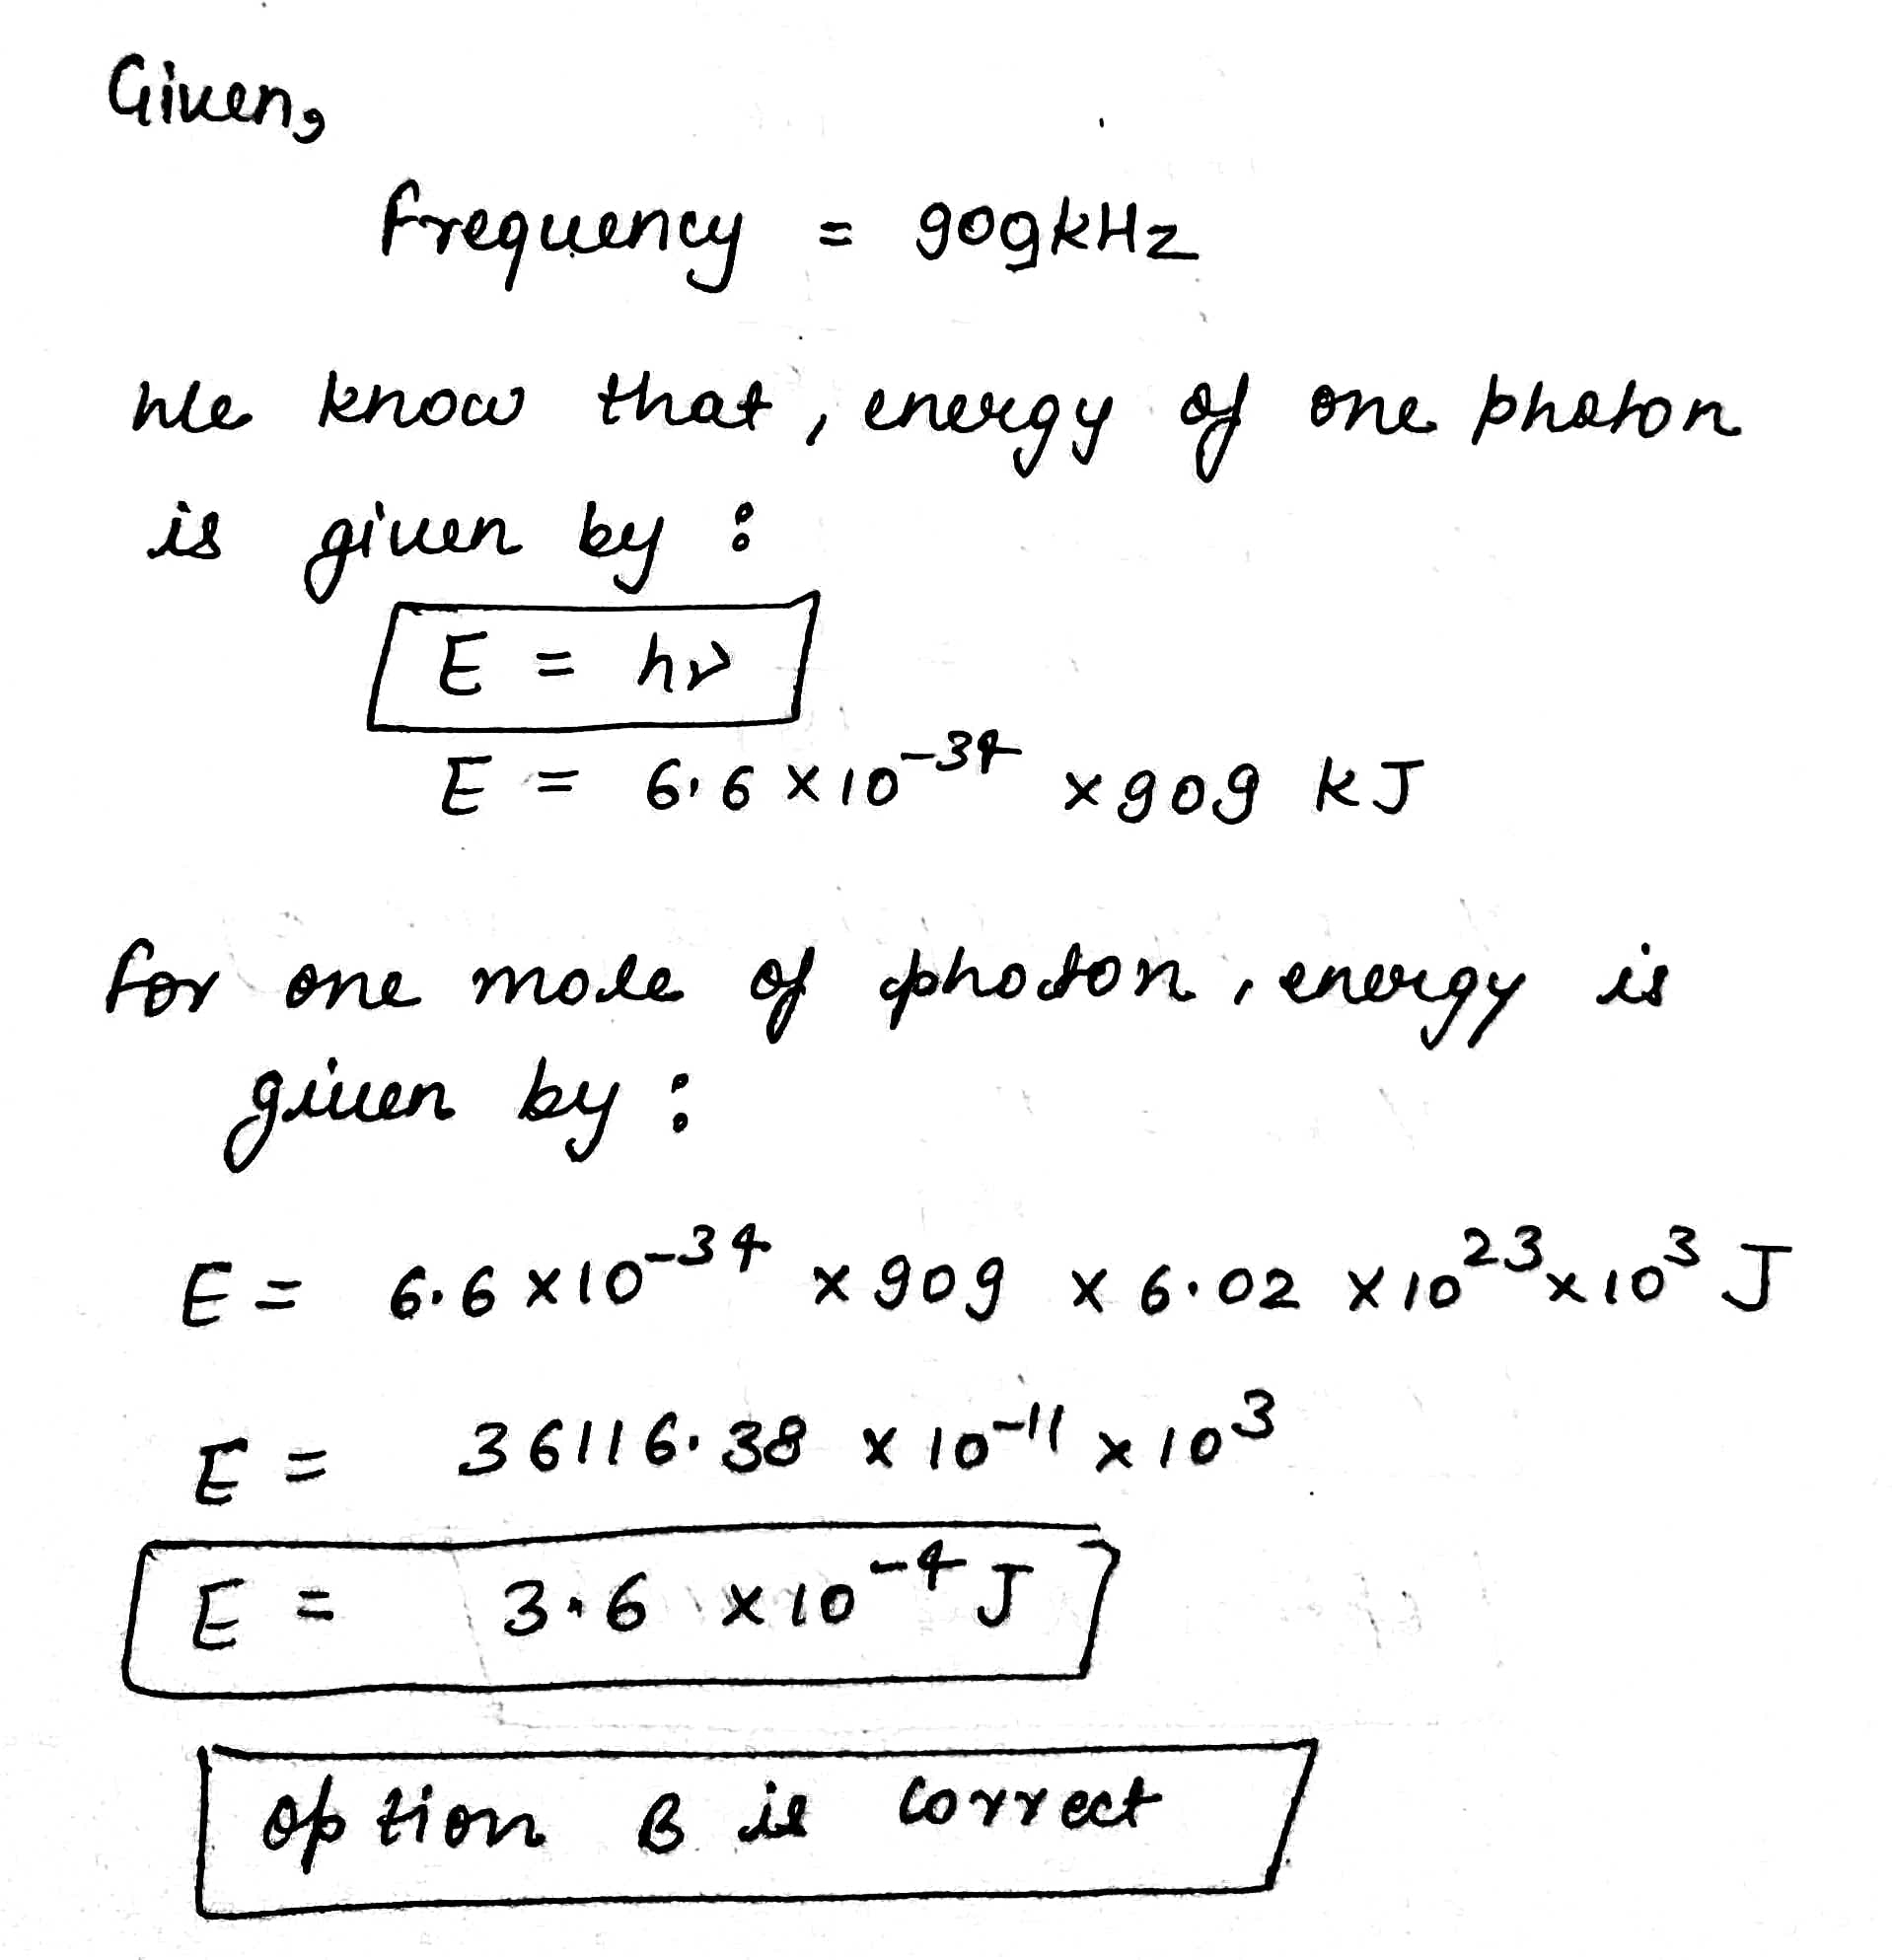 Given,
frequency = 909kHz
We know that, energy of one photon
is given by :
E = hν
E = 6.6 × 10⁻³⁴ × 909 kJ
for one mole of photon, energy is
given by :
E = 6.6 × 10⁻³⁴ × 909 × 6.02 × 10²³ × 10³ J
E = 36116.38 × 10⁻¹¹ × 10³
E = 3.6 × 10⁻⁴ J
option B is correct